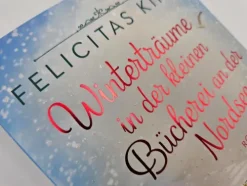 FELICITAS KI
Winterträume
in der kleinen
Bücherei an der
Nordsee